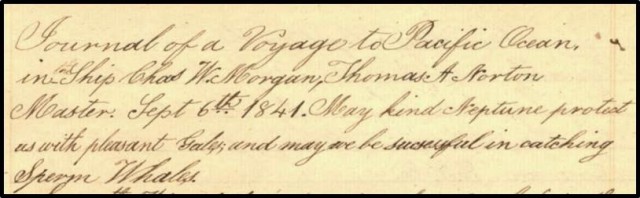 Journal of a Voyage to Pacific Ocean,
in Ship Chas W. Morgan, Thomas A Norton
Master. Sept 6th 1841. May kind Neptune protect
us with pleasant Gales, and may we be sucessful in catching
Sperm Whales.